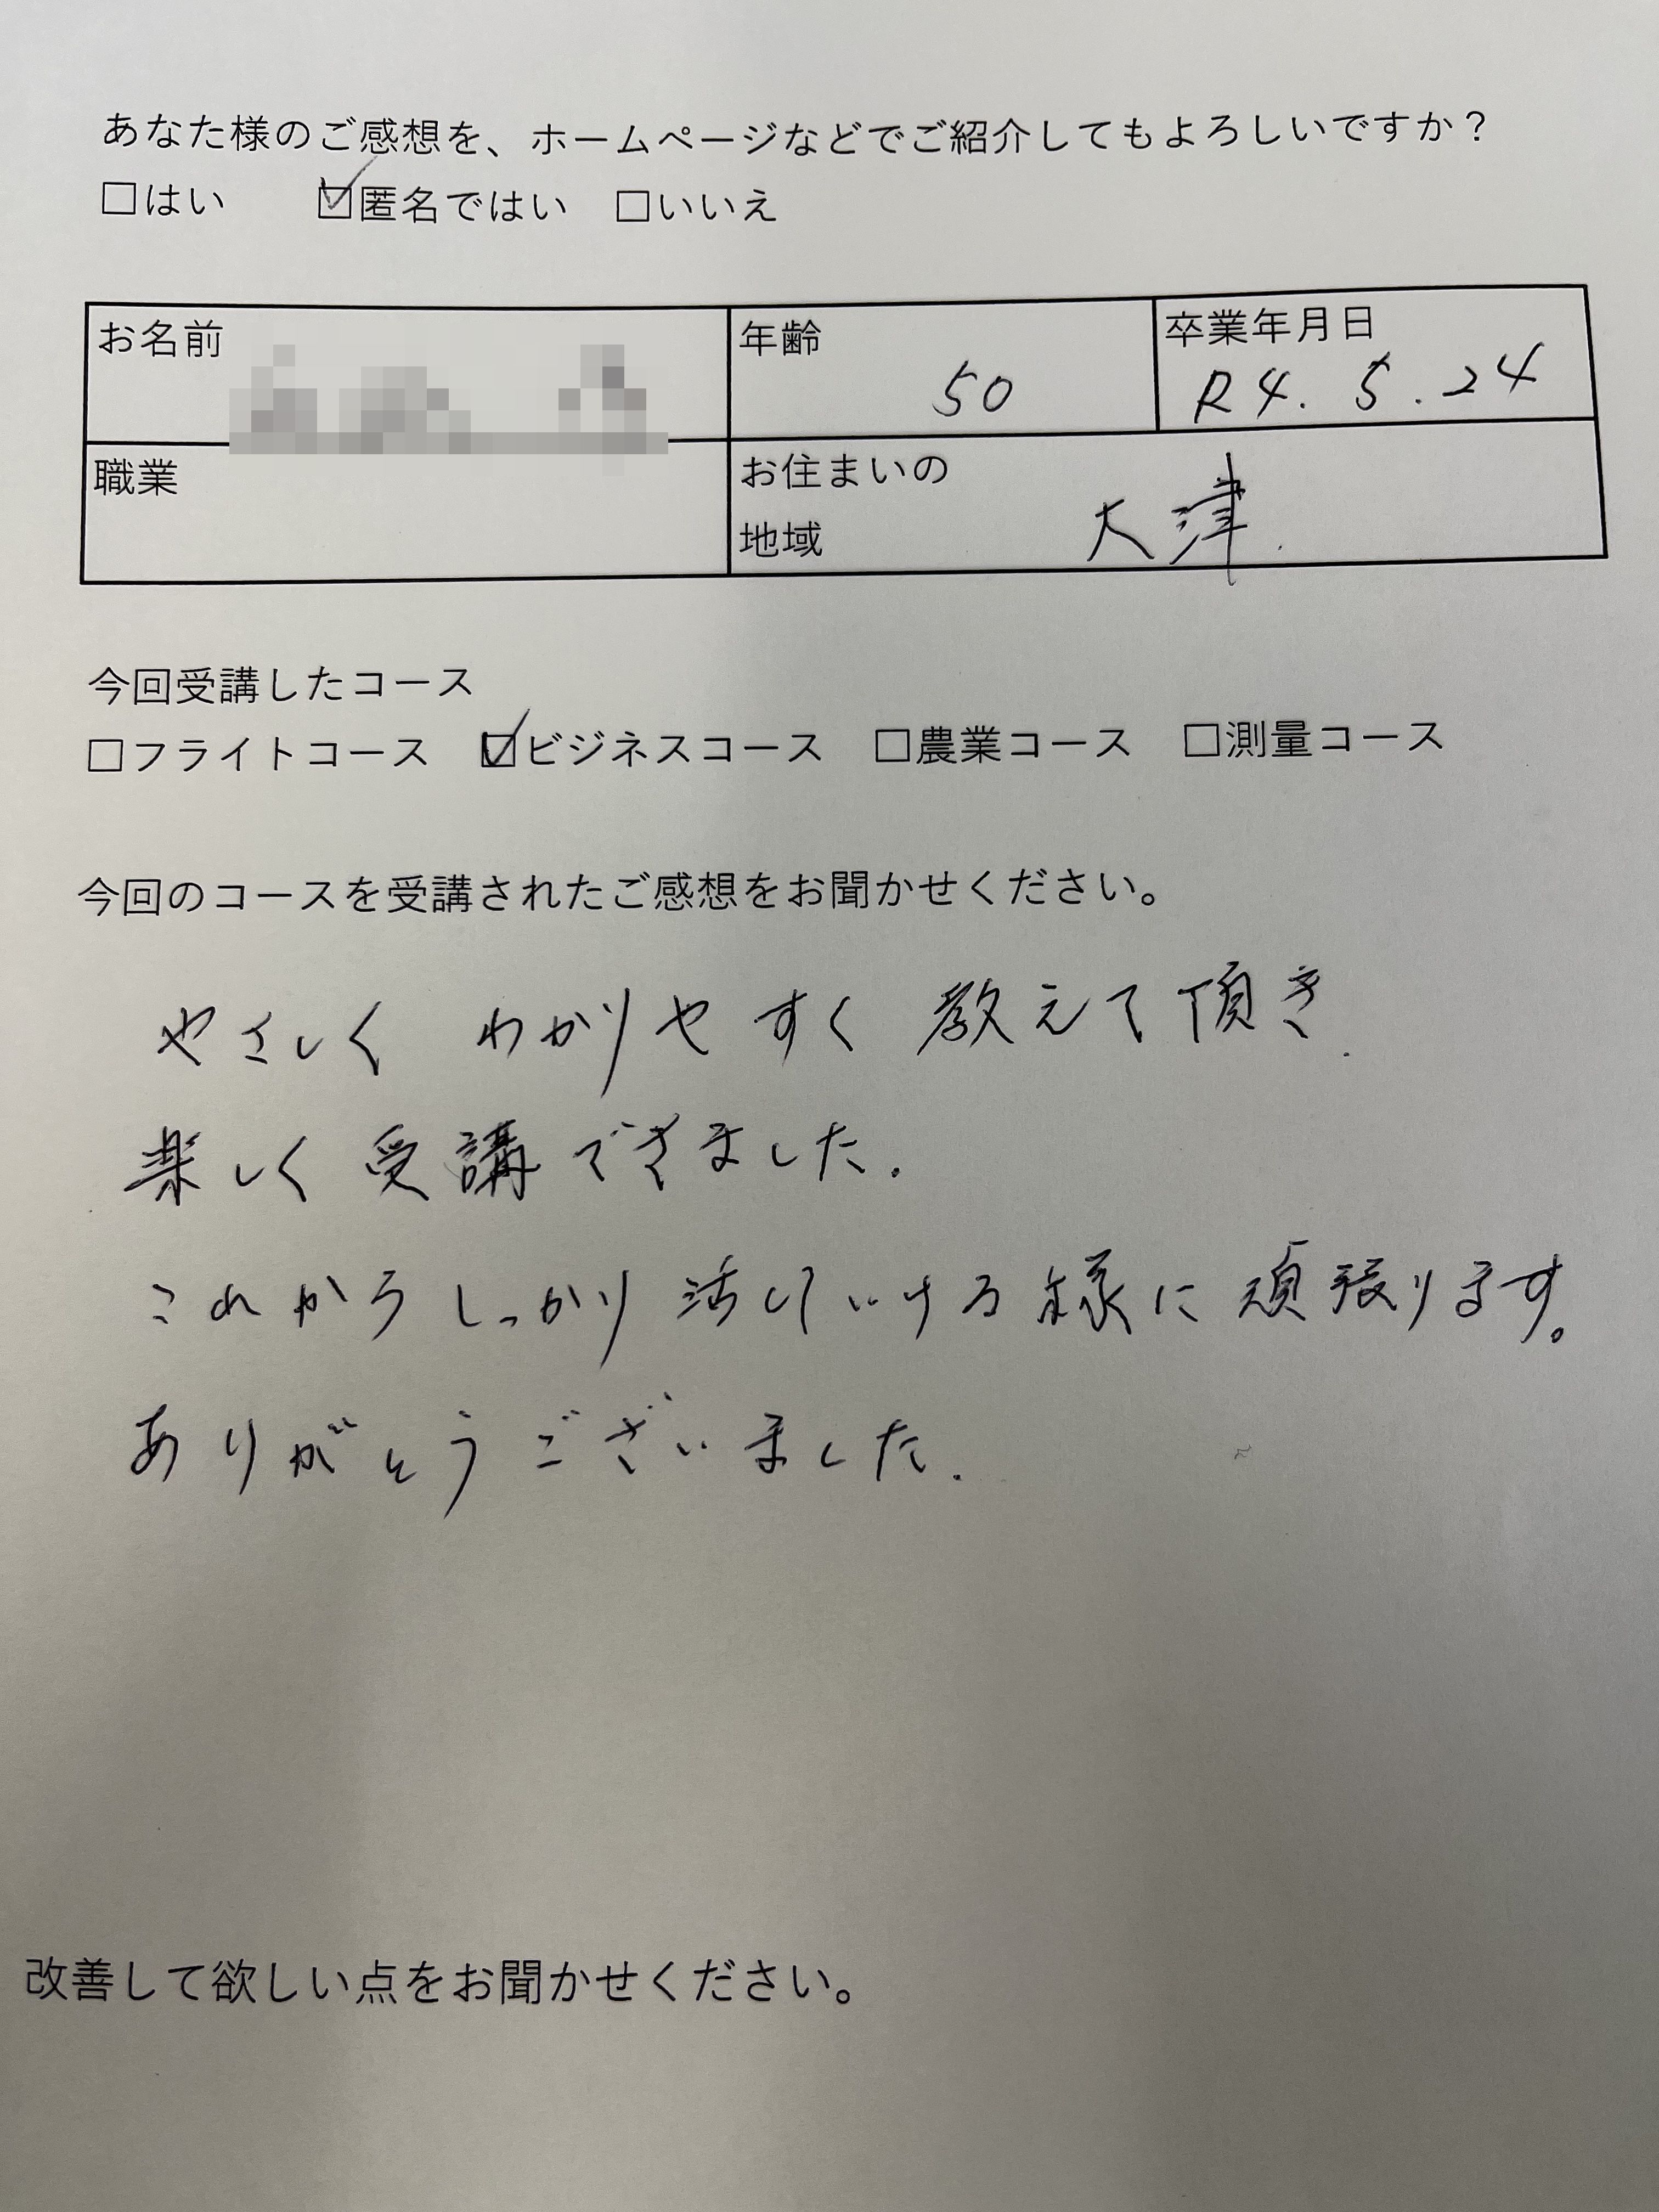 あなた様のご感想を、ホームページなどでご紹介してもよろしいですか？
□はい ☑匿名ではい □いいえ
お名前 年齢 50 卒業年月日 R4.5.24
職業 お住まいの地域 大津.
今回受講したコース
□フライトコース ☑ビジネスコース □農業コース □測量コース
今回のコースを受講されたご感想をお聞かせください。
やさしく わかりやすく 教えて頂き.
楽しく受講できました.
これからしっかり活していける様に頑張ります。
ありがとうございました.
改善して欲しい点をお聞かせください。